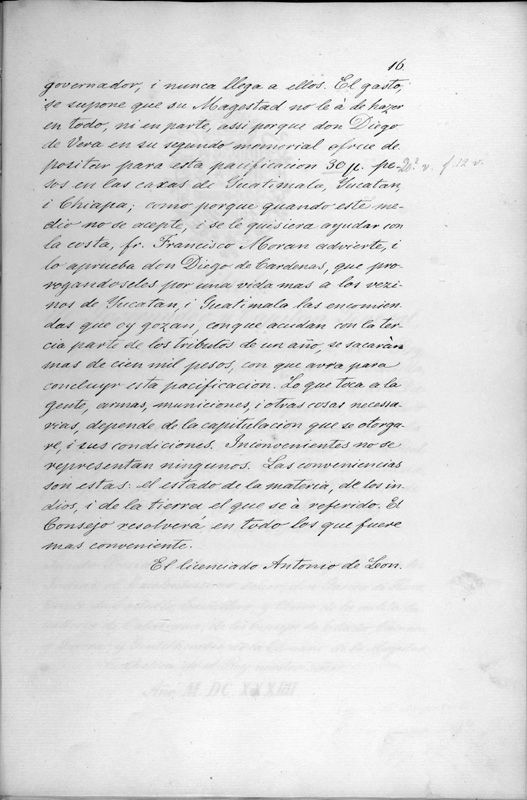 16
governador, i nunca llega a ellos. El gasto,
se supone que su Magestad no le à de hazer
en todo, ni en parte, assi porque don Diego
de Vera en su segundo memorial ofrece de
positar para esta pacificacion 30 µ. pe-
sos en las caxas de Guatimala, Yucatan,
i Chiapa; como porque quando este me-
dio no se acepte, i se le quisiera ayudar con
la costa, fr. Francisco Moran advierte, i
lo aprueba don Diego de Cardenas, que pro-
rogandoseles por una vida mas a los vezi-
nos de Yucatan, i Guatimala las encomien-
das que oy gozan, con que acudan con la ter-
cia parte de los tributos de un año, se sacaràn
mas de cien mil pesos, con que avra para
concluyr esta pacificacion. Lo que toca a la
gente, armas, municiones, i otras cosas necessa-
rias, depende de la capitulacion que se otorga-
re, i sus condiciones. Inconvenientes no se
representan ningunos. Las conveniencias
son estas: el estado de la materia, de los in-
dios, i de la tierra el que se à referido: El
Consejo resolverá en todo los que fuere
mas conveniente.
El licenciado Antonio de Leon.
Año M. DC XXXIIII